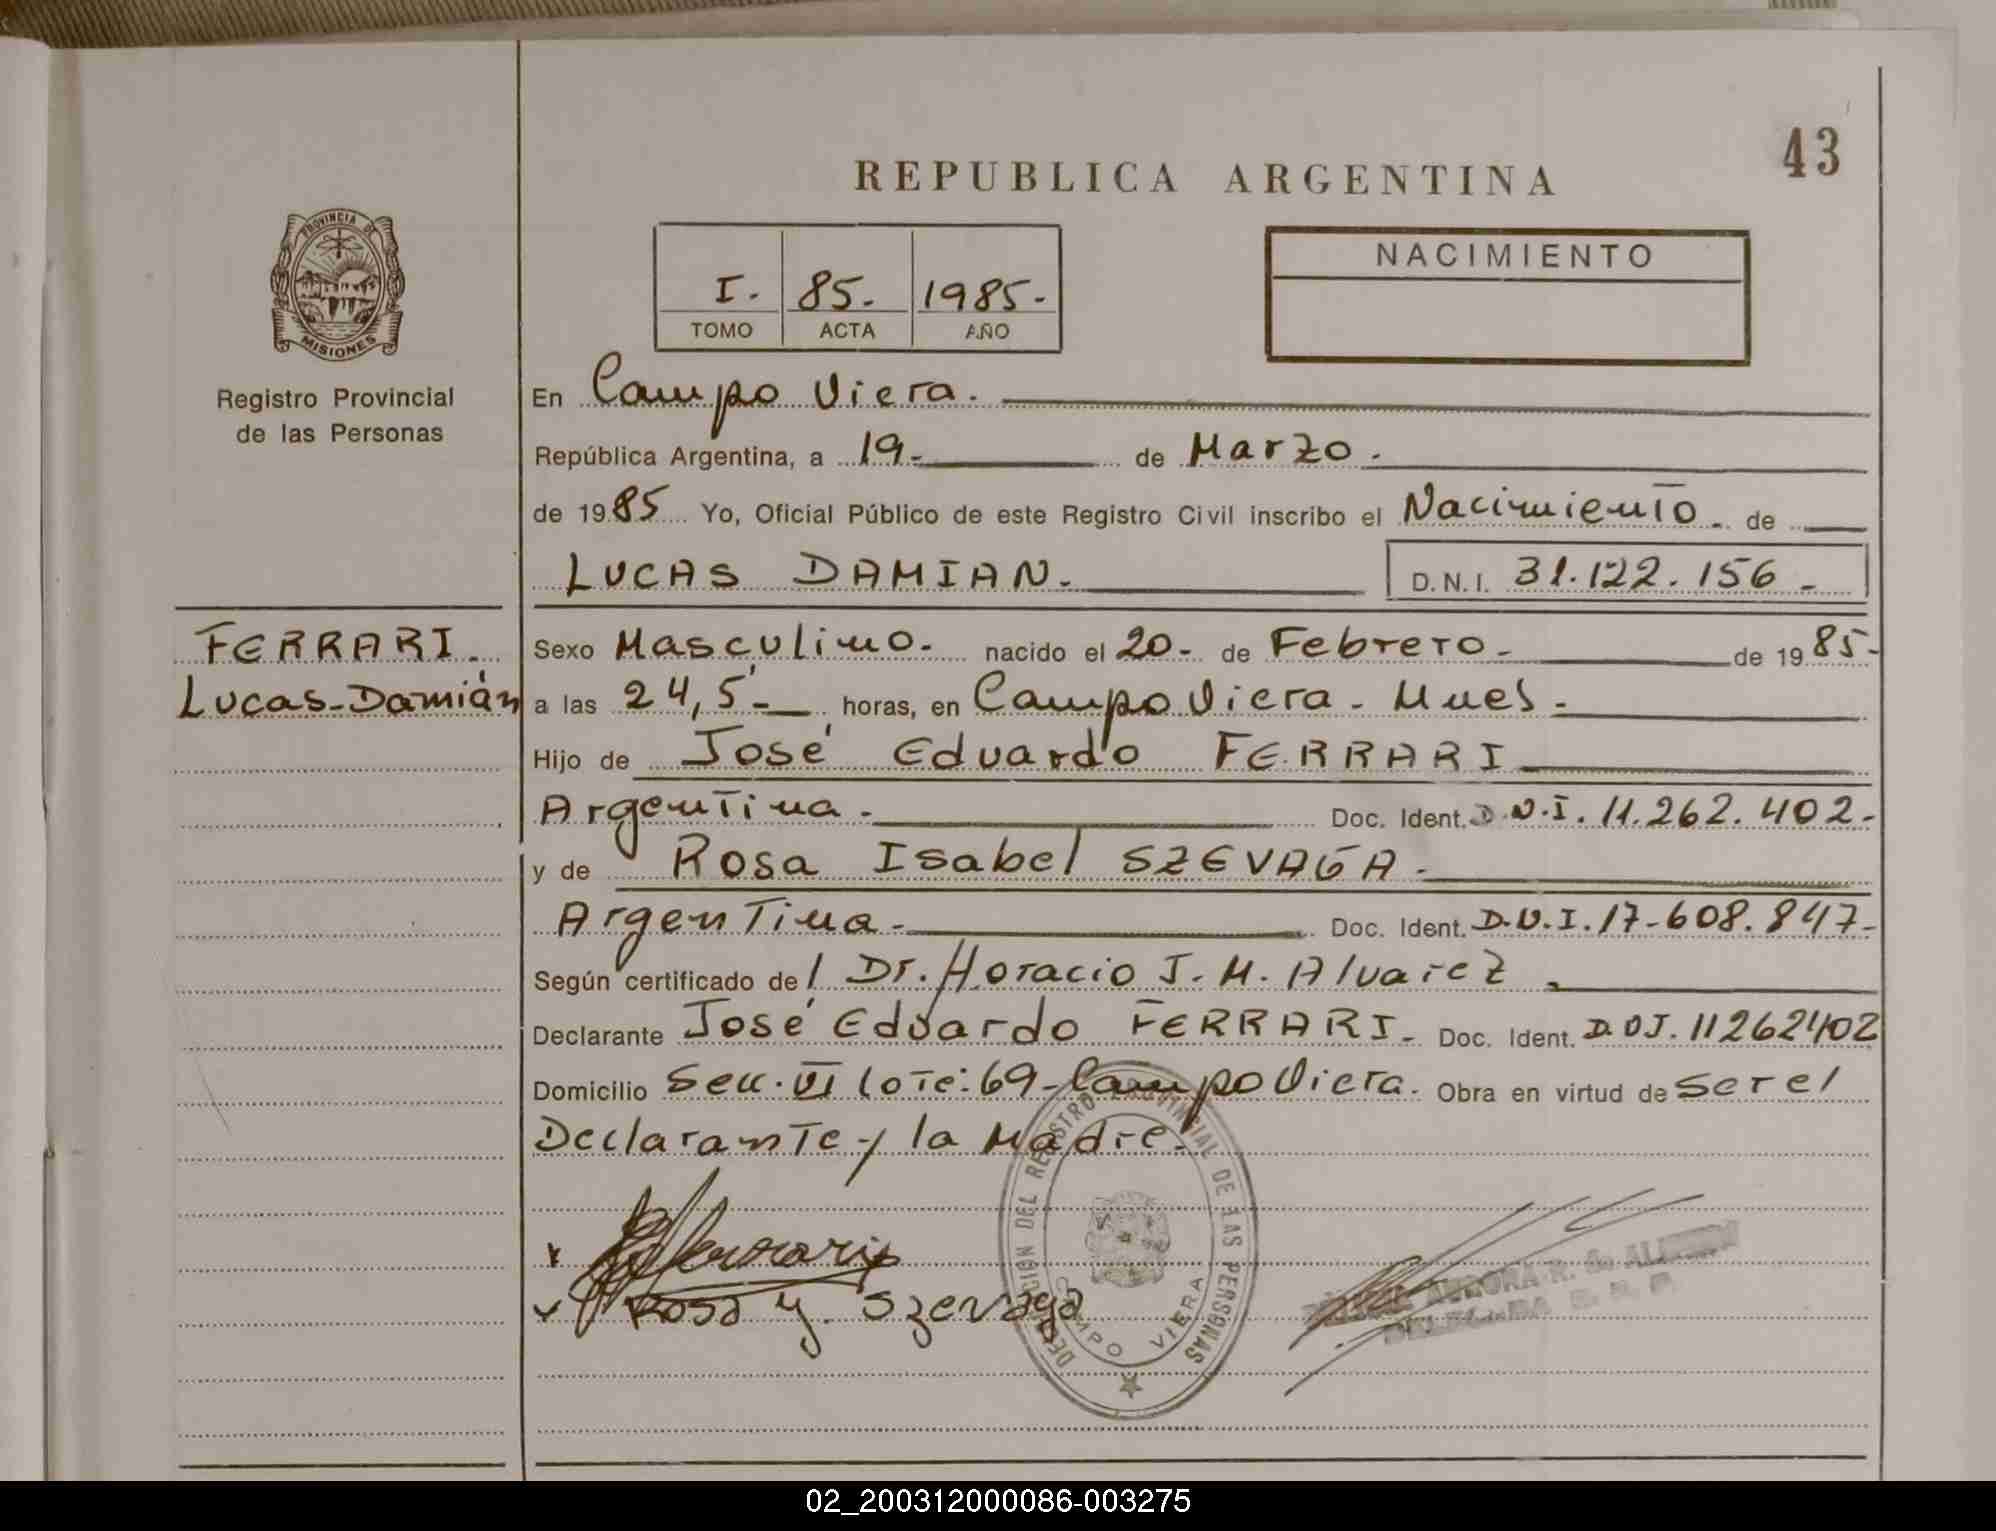 43
REPUBLICA ARGENTINA
PROVINCIA DE
MISIONES
Registro Provincial
de las Personas
I. 85. 1985.-
TOMO ACTA AÑO
NACIMIENTO
En Campo Viera.
República Argentina, a 19.- de Marzo.
de 1985 Yo, Oficial Público de este Registro Civil inscribo el Nacimiento. de
LUCAS DAMIAN. D.N.I. 31.122.156 -
FERRARI.
Lucas-Damián
Sexo Masculino- nacido el 20- de Febrero- de 1985-
a las 24,5- horas, en Campo Viera - Mnes.
Hijo de José Eduardo FERRARI
Argentina. Doc. Ident. D.N.I. 11.262.402-
y de Rosa Isabel SZEVAGA.
Argentina. Doc. Ident. D.N.I. 17-608.847-
Según certificado de Dr. Horacio J. M. Alvarez
Declarante José Eduardo FERRARI. Doc. Ident. D.N.I. 11262402
Domicilio Secc. VI Lote: 69-Campo Viera. Obra en virtud de Ser el
Declarante y la Madre.
Rosa Y. Szevaga
DELEGACION DEL REGISTRO PROVINCIAL DE LAS PERSONAS
CAMPO VIERA
AURORA R. de
02_200312000086-003275